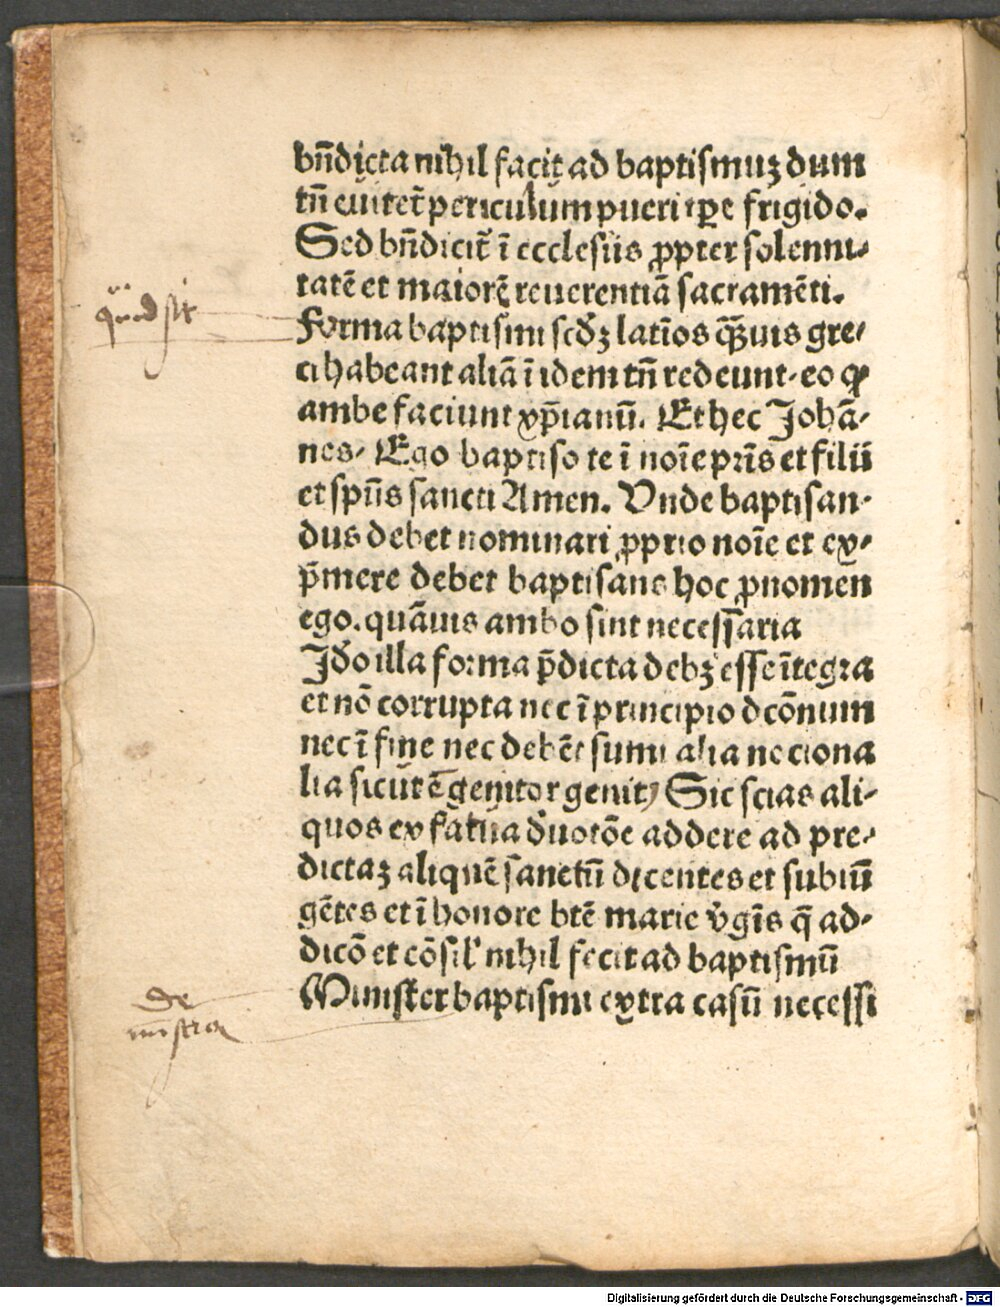 bn̄dicta nihil facit ad baptismuȝ dum
tn̄ euitet᷑ periculum pueri tꝑe frigido.
Sed bn̄dicit᷑ ī ecclesiis ꝓpter solenni-
tatē et maiorē reuerentiā sacramēti.
quid sit
Forma baptismi scd̄ȝ latīos qȝuis gre-
ci habeant aliā ī idem tn̄ redeunt. eo ꝙ
ambe faciunt xp̄ianū. Et hec Johā-
nes. Ego baptiso te ī noīe pr̄is et filii
et sp̄us sancti Amen. Vnde baptisan-
dus debet nominari ꝓprio noīe et ex-
p̄mere debet baptisans hoc ꝓnomen
ego. quāuis ambo sint necess̄aria
Jd̄o illa forma p̄dicta debȝ esse ītegra
et nō corrupta nec ī principio dcōnum
nec ī fine nec debēt sumi alia nociona
lia sicut ē genitor genitꝰ Sic scias ali-
quos ex fatua d̄uotōe addere ad pre-
dictaȝ aliquē sanctū dicentes et subiū
gētes et ī honore btē marie v̄gīs q̄ ad-
dicō et cōsil' nihil fecit ad baptismū
de
ministro
Minister baptismi extra casū necessi
Digitalisierung gefördert durch die Deutsche Forschungsgemeinschaft - DFG